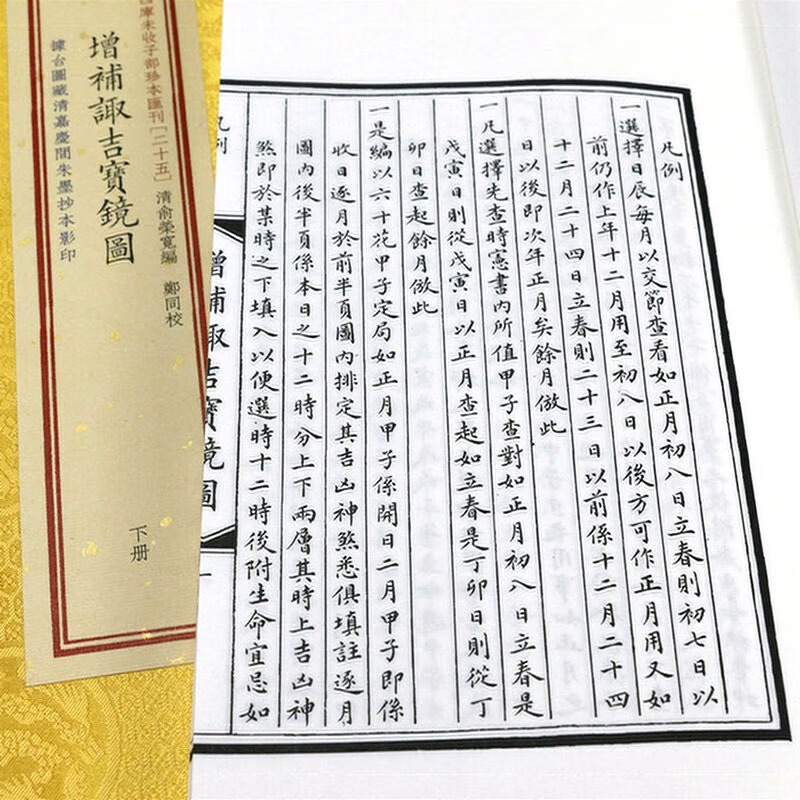 四庫未收子部珍本匯刊[二十五] 清俞榮寬編 鄭同校
增補諏吉寶鏡圖
據台圖藏清嘉慶間朱墨抄本影印
下册
凡例
一選擇日辰每月以交節查看如正月初八日立春則初七日以
前仍作上年十二月用至初八日以後方可作正月用又如
十二月二十四日立春則二十三日以前係十二月二十四
日以後即次年正月矣餘月倣此
一凡選擇先查時憲書內所值甲子查對如正月初八日立春是
戊寅日則從戊寅日以正月查起如立春是丁卯日則從丁
卯日查起餘月倣此
一是編以六十花甲子定局如正月甲子係開日二月甲子即係
收日逐月於前半頁圖內排定其吉凶神煞悉俱填註逐月
圖內後半頁係本日之十二時分上下兩層其時上吉凶神
煞即於某時之下填入以便選時十二時後附生命宜忌如
凡例
增補諏吉寶鏡圖
一